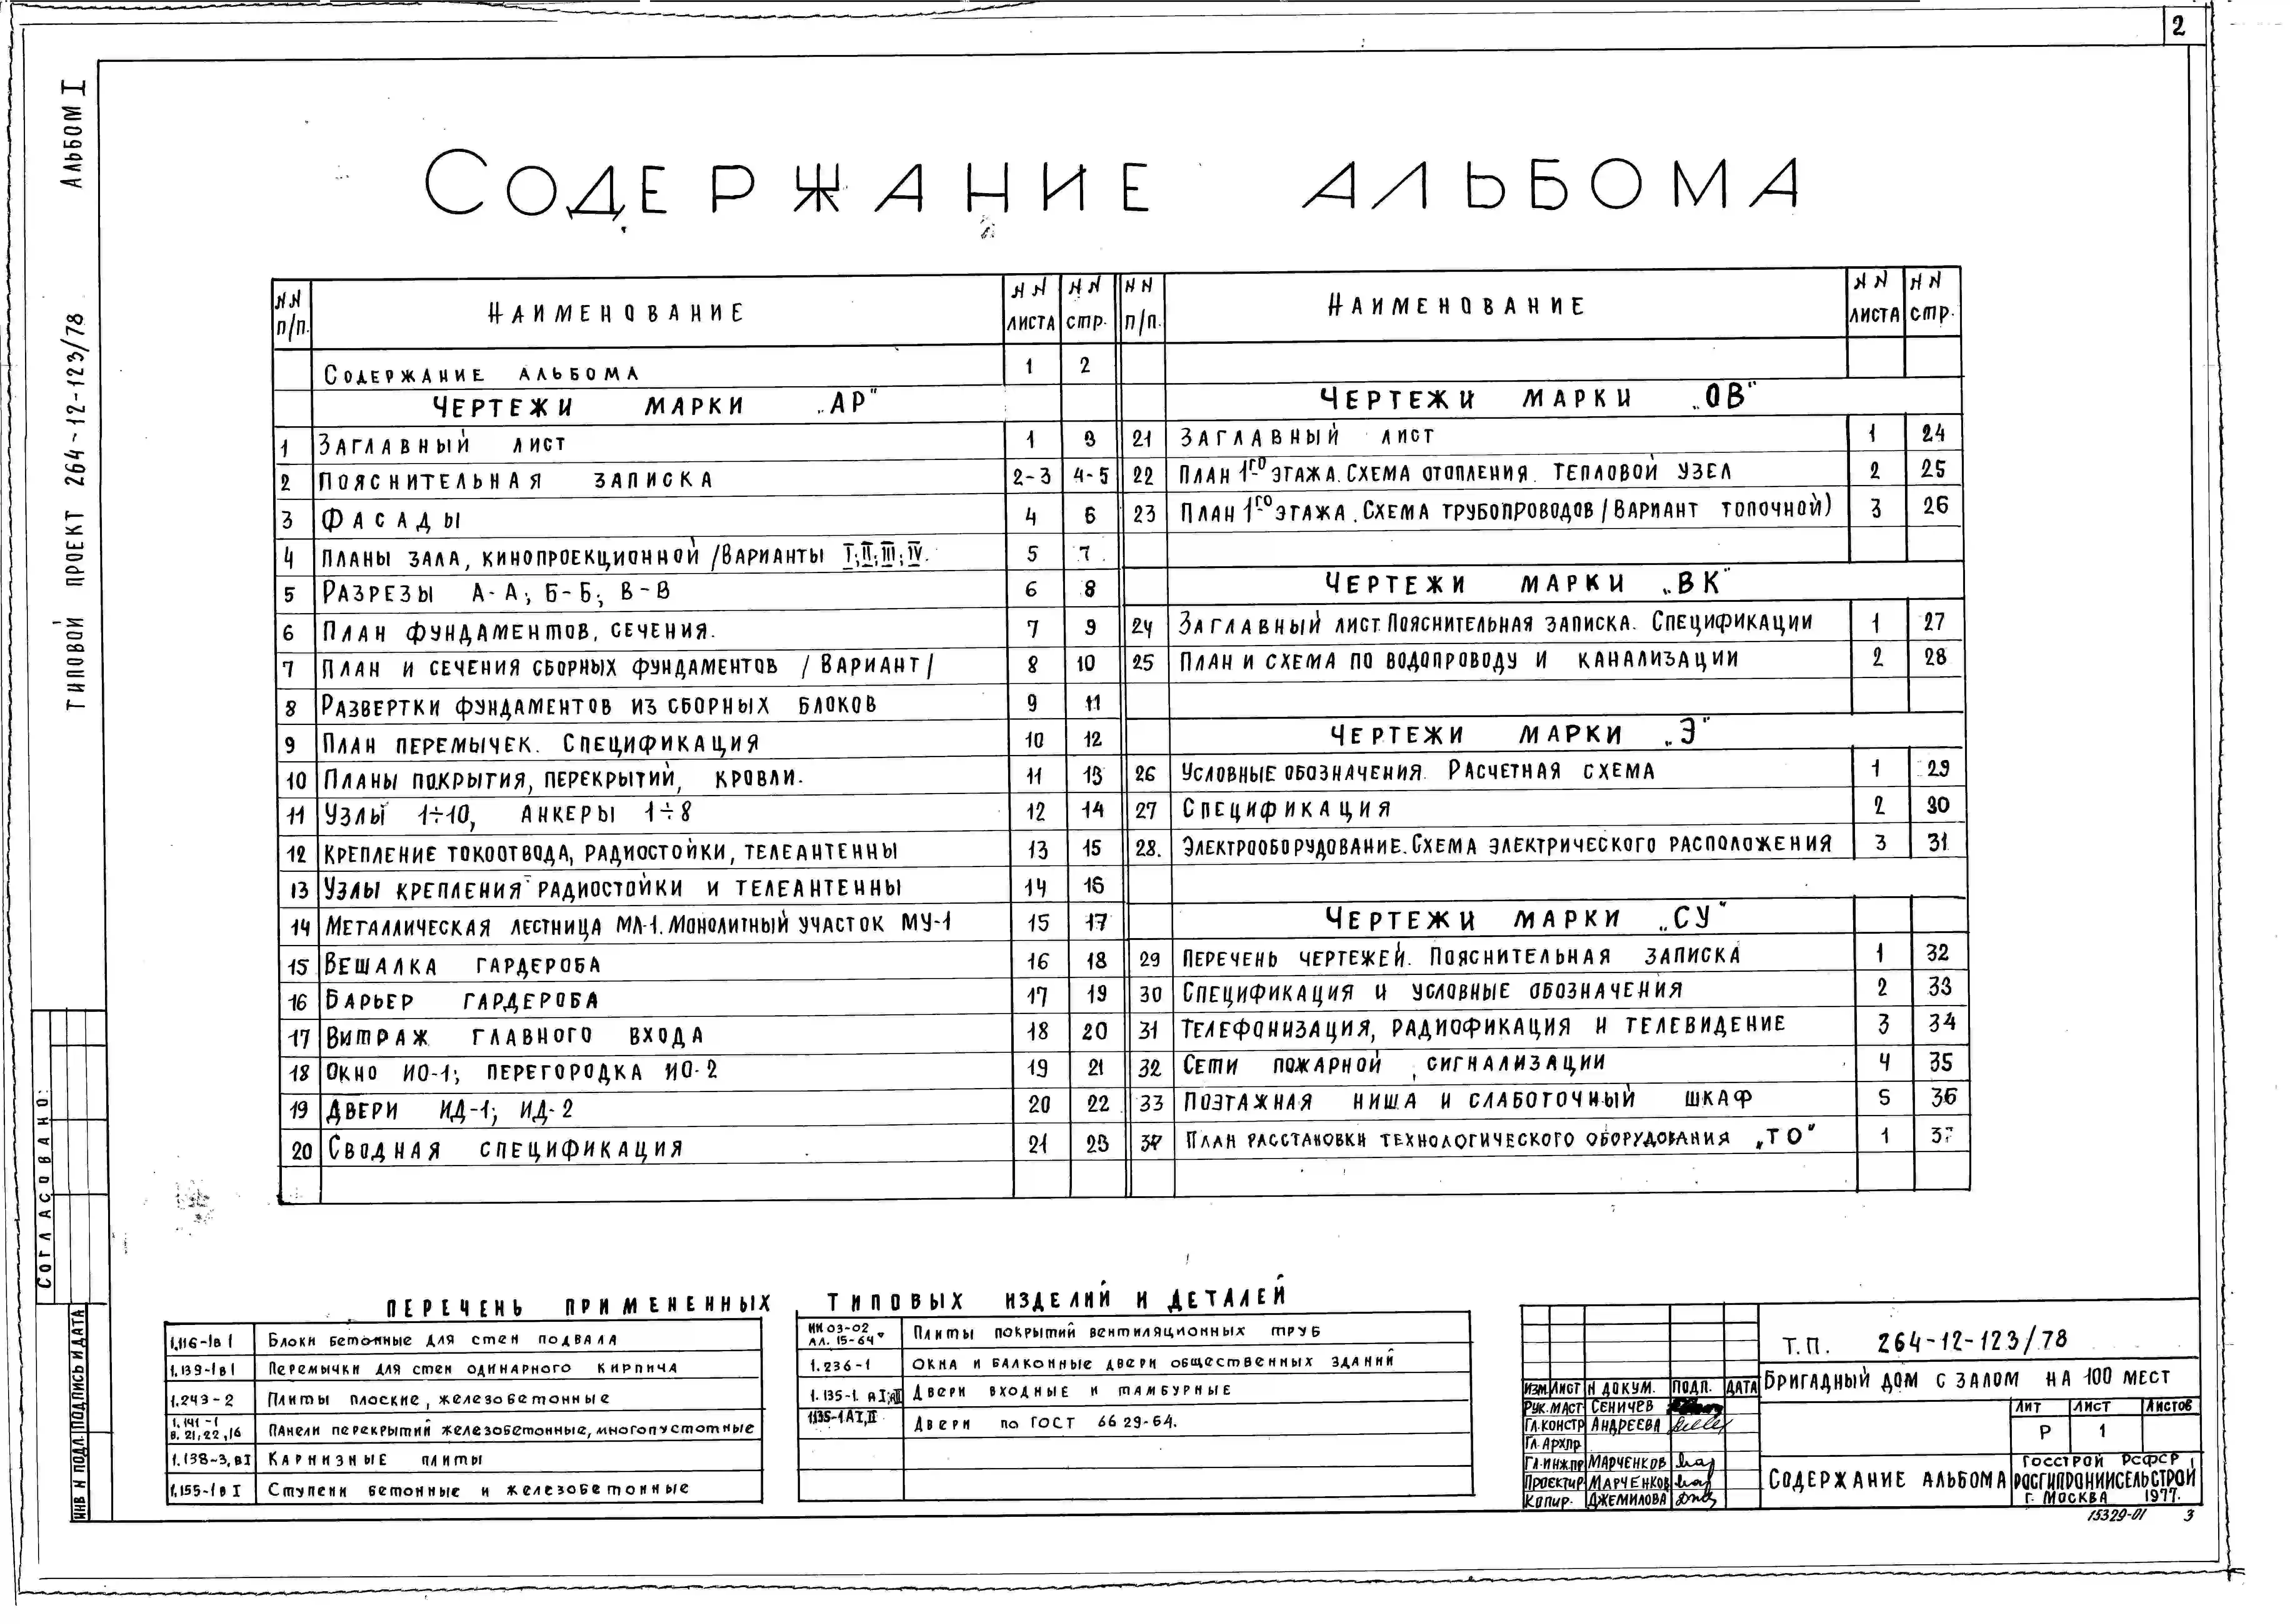 2
АЛЬБОМ I
ТИПОВОЙ ПРОЕКТ 264-12-123/78
СОДЕРЖАНИЕ АЛЬБОМА
NN п/п. НАИМЕНОВАНИЕ NN ЛИСТА NN СТР.
СОДЕРЖАНИЕ АЛЬБОМА 1 2
ЧЕРТЕЖИ МАРКИ „АР"
1 ЗАГЛАВНЫЙ ЛИСТ 1 3
2 ПОЯСНИТЕЛЬНАЯ ЗАПИСКА 2-3 4-5
3 ФАСАДЫ 4 6
4 ПЛАНЫ ЗАЛА, КИНОПРОЕКЦИОННОЙ /ВАРИАНТЫ I; II; III; IV. 5 7
5 РАЗРЕЗЫ А-А; Б-Б; В-В 6 8
6 ПЛАН ФУНДАМЕНТОВ, СЕЧЕНИЯ. 7 9
7 ПЛАН И СЕЧЕНИЯ СБОРНЫХ ФУНДАМЕНТОВ /ВАРИАНТ/ 8 10
8 РАЗВЕРТКИ ФУНДАМЕНТОВ ИЗ СБОРНЫХ БЛОКОВ 9 11
9 ПЛАН ПЕРЕМЫЧЕК. СПЕЦИФИКАЦИЯ 10 12
10 ПЛАНЫ ПОКРЫТИЯ, ПЕРЕКРЫТИЙ, КРОВЛИ. 11 13
11 УЗЛЫ 1÷10, АНКЕРЫ 1÷8 12 14
12 КРЕПЛЕНИЕ ТОКООТВОДА, РАДИОСТОЙКИ, ТЕЛЕАНТЕННЫ 13 15
13 УЗЛЫ КРЕПЛЕНИЯ РАДИОСТОЙКИ И ТЕЛЕАНТЕННЫ 14 16
14 МЕТАЛЛИЧЕСКАЯ ЛЕСТНИЦА МЛ-1. МОНОЛИТНЫЙ УЧАСТОК МУ-1 15 17
15 ВЕШАЛКА ГАРДЕРОБА 16 18
16 БАРЬЕР ГАРДЕРОБА 17 19
17 ВИТРАЖ ГЛАВНОГО ВХОДА 18 20
18 ОКНО ИО-1; ПЕРЕГОРОДКА ИО-2 19 21
19 ДВЕРИ ИД-1; ИД-2 20 22
20 СВОДНАЯ СПЕЦИФИКАЦИЯ 21 23
NN п/п. НАИМЕНОВАНИЕ NN ЛИСТА NN СТР.
ЧЕРТЕЖИ МАРКИ „ОВ"
21 ЗАГЛАВНЫЙ ЛИСТ 1 24
22 ПЛАН 1ГО ЭТАЖА. СХЕМА ОТОПЛЕНИЯ. ТЕПЛОВОЙ УЗЕЛ 2 25
23 ПЛАН 1ГО ЭТАЖА. СХЕМА ТРУБОПРОВОДОВ /ВАРИАНТ ТОПОЧНОЙ) 3 26
ЧЕРТЕЖИ МАРКИ „ВК"
24 ЗАГЛАВНЫЙ ЛИСТ. ПОЯСНИТЕЛЬНАЯ ЗАПИСКА. СПЕЦИФИКАЦИИ 1 27
25 ПЛАН И СХЕМА ПО ВОДОПРОВОДУ И КАНАЛИЗАЦИИ 2 28
ЧЕРТЕЖИ МАРКИ „Э"
26 УСЛОВНЫЕ ОБОЗНАЧЕНИЯ. РАСЧЕТНАЯ СХЕМА 1 29
27 СПЕЦИФИКАЦИЯ 2 30
28. ЭЛЕКТРООБОРУДОВАНИЕ. СХЕМА ЭЛЕКТРИЧЕСКОГО РАСПОЛОЖЕНИЯ 3 31
ЧЕРТЕЖИ МАРКИ „СУ"
29 ПЕРЕЧЕНЬ ЧЕРТЕЖЕЙ. ПОЯСНИТЕЛЬНАЯ ЗАПИСКА 1 32
30 СПЕЦИФИКАЦИЯ И УСЛОВНЫЕ ОБОЗНАЧЕНИЯ 2 33
31 ТЕЛЕФОНИЗАЦИЯ, РАДИОФИКАЦИЯ И ТЕЛЕВИДЕНИЕ 3 34
32 СЕТИ ПОЖАРНОЙ СИГНАЛИЗАЦИИ 4 35
33 ПОЭТАЖНАЯ НИША И СЛАБОТОЧНЫЙ ШКАФ 5 36
34 ПЛАН РАССТАНОВКИ ТЕХНОЛОГИЧЕСКОГО ОБОРУДОВАНИЯ „ТО" 1 37
СОГЛАСОВАНО:
ИНВ N ПОДЛ. ПОДПИСЬ И ДАТА
ПЕРЕЧЕНЬ ПРИМЕНЕННЫХ ТИПОВЫХ ИЗДЕЛИЙ И ДЕТАЛЕЙ
1.116-1в I БЛОКИ БЕТОННЫЕ ДЛЯ СТЕН ПОДВАЛА
1.139-1в I ПЕРЕМЫЧКИ ДЛЯ СТЕН ОДИНАРНОГО КИРПИЧА
1.243-2 ПЛИТЫ ПЛОСКИЕ, ЖЕЛЕЗОБЕТОННЫЕ
1.141-1 В. 21,22,16 ПАНЕЛИ ПЕРЕКРЫТИЙ ЖЕЛЕЗОБЕТОННЫЕ, МНОГОПУСТОТНЫЕ
1.138-3, вI КАРНИЗНЫЕ ПЛИТЫ
1.155-1в I СТУПЕНИ БЕТОННЫЕ И ЖЕЛЕЗОБЕТОННЫЕ
ИИ 03-02 АЛ. 15-64 ПЛИТЫ ПОКРЫТИЙ ВЕНТИЛЯЦИОННЫХ ТРУБ
1.236-1 ОКНА И БАЛКОННЫЕ ДВЕРИ ОБЩЕСТВЕННЫХ ЗДАНИЙ
1.135-1. ДВЕРИ ВХОДНЫЕ И ТАМБУРНЫЕ
1.135-1 А I, II ДВЕРИ ПО ГОСТ 6629-64.
Т.П. 264-12-123/78
БРИГАДНЫЙ ДОМ С ЗАЛОМ НА 100 МЕСТ
ИЗМ ЛИСТ N ДОКУМ. ПОДП. ДАТА
РУК.МАСТ СЕНИЧЕВ
ГЛ.КОНСТР АНДРЕЕВА
ГЛ.АРХПР
ГЛ.ИНЖПР МАРЧЕНКОВ
ПРОЕКТИР МАРЧЕНКОВ
КОПИР. ДЖЕМИЛОВА
ЛИТ ЛИСТ ЛИСТОВ
Р 1
СОДЕРЖАНИЕ АЛЬБОМА
ГОССТРОЙ РСФСР
РОСГИПРОНИИСЕЛЬСТРОЙ
Г. МОСКВА 1977.
15329-01 3